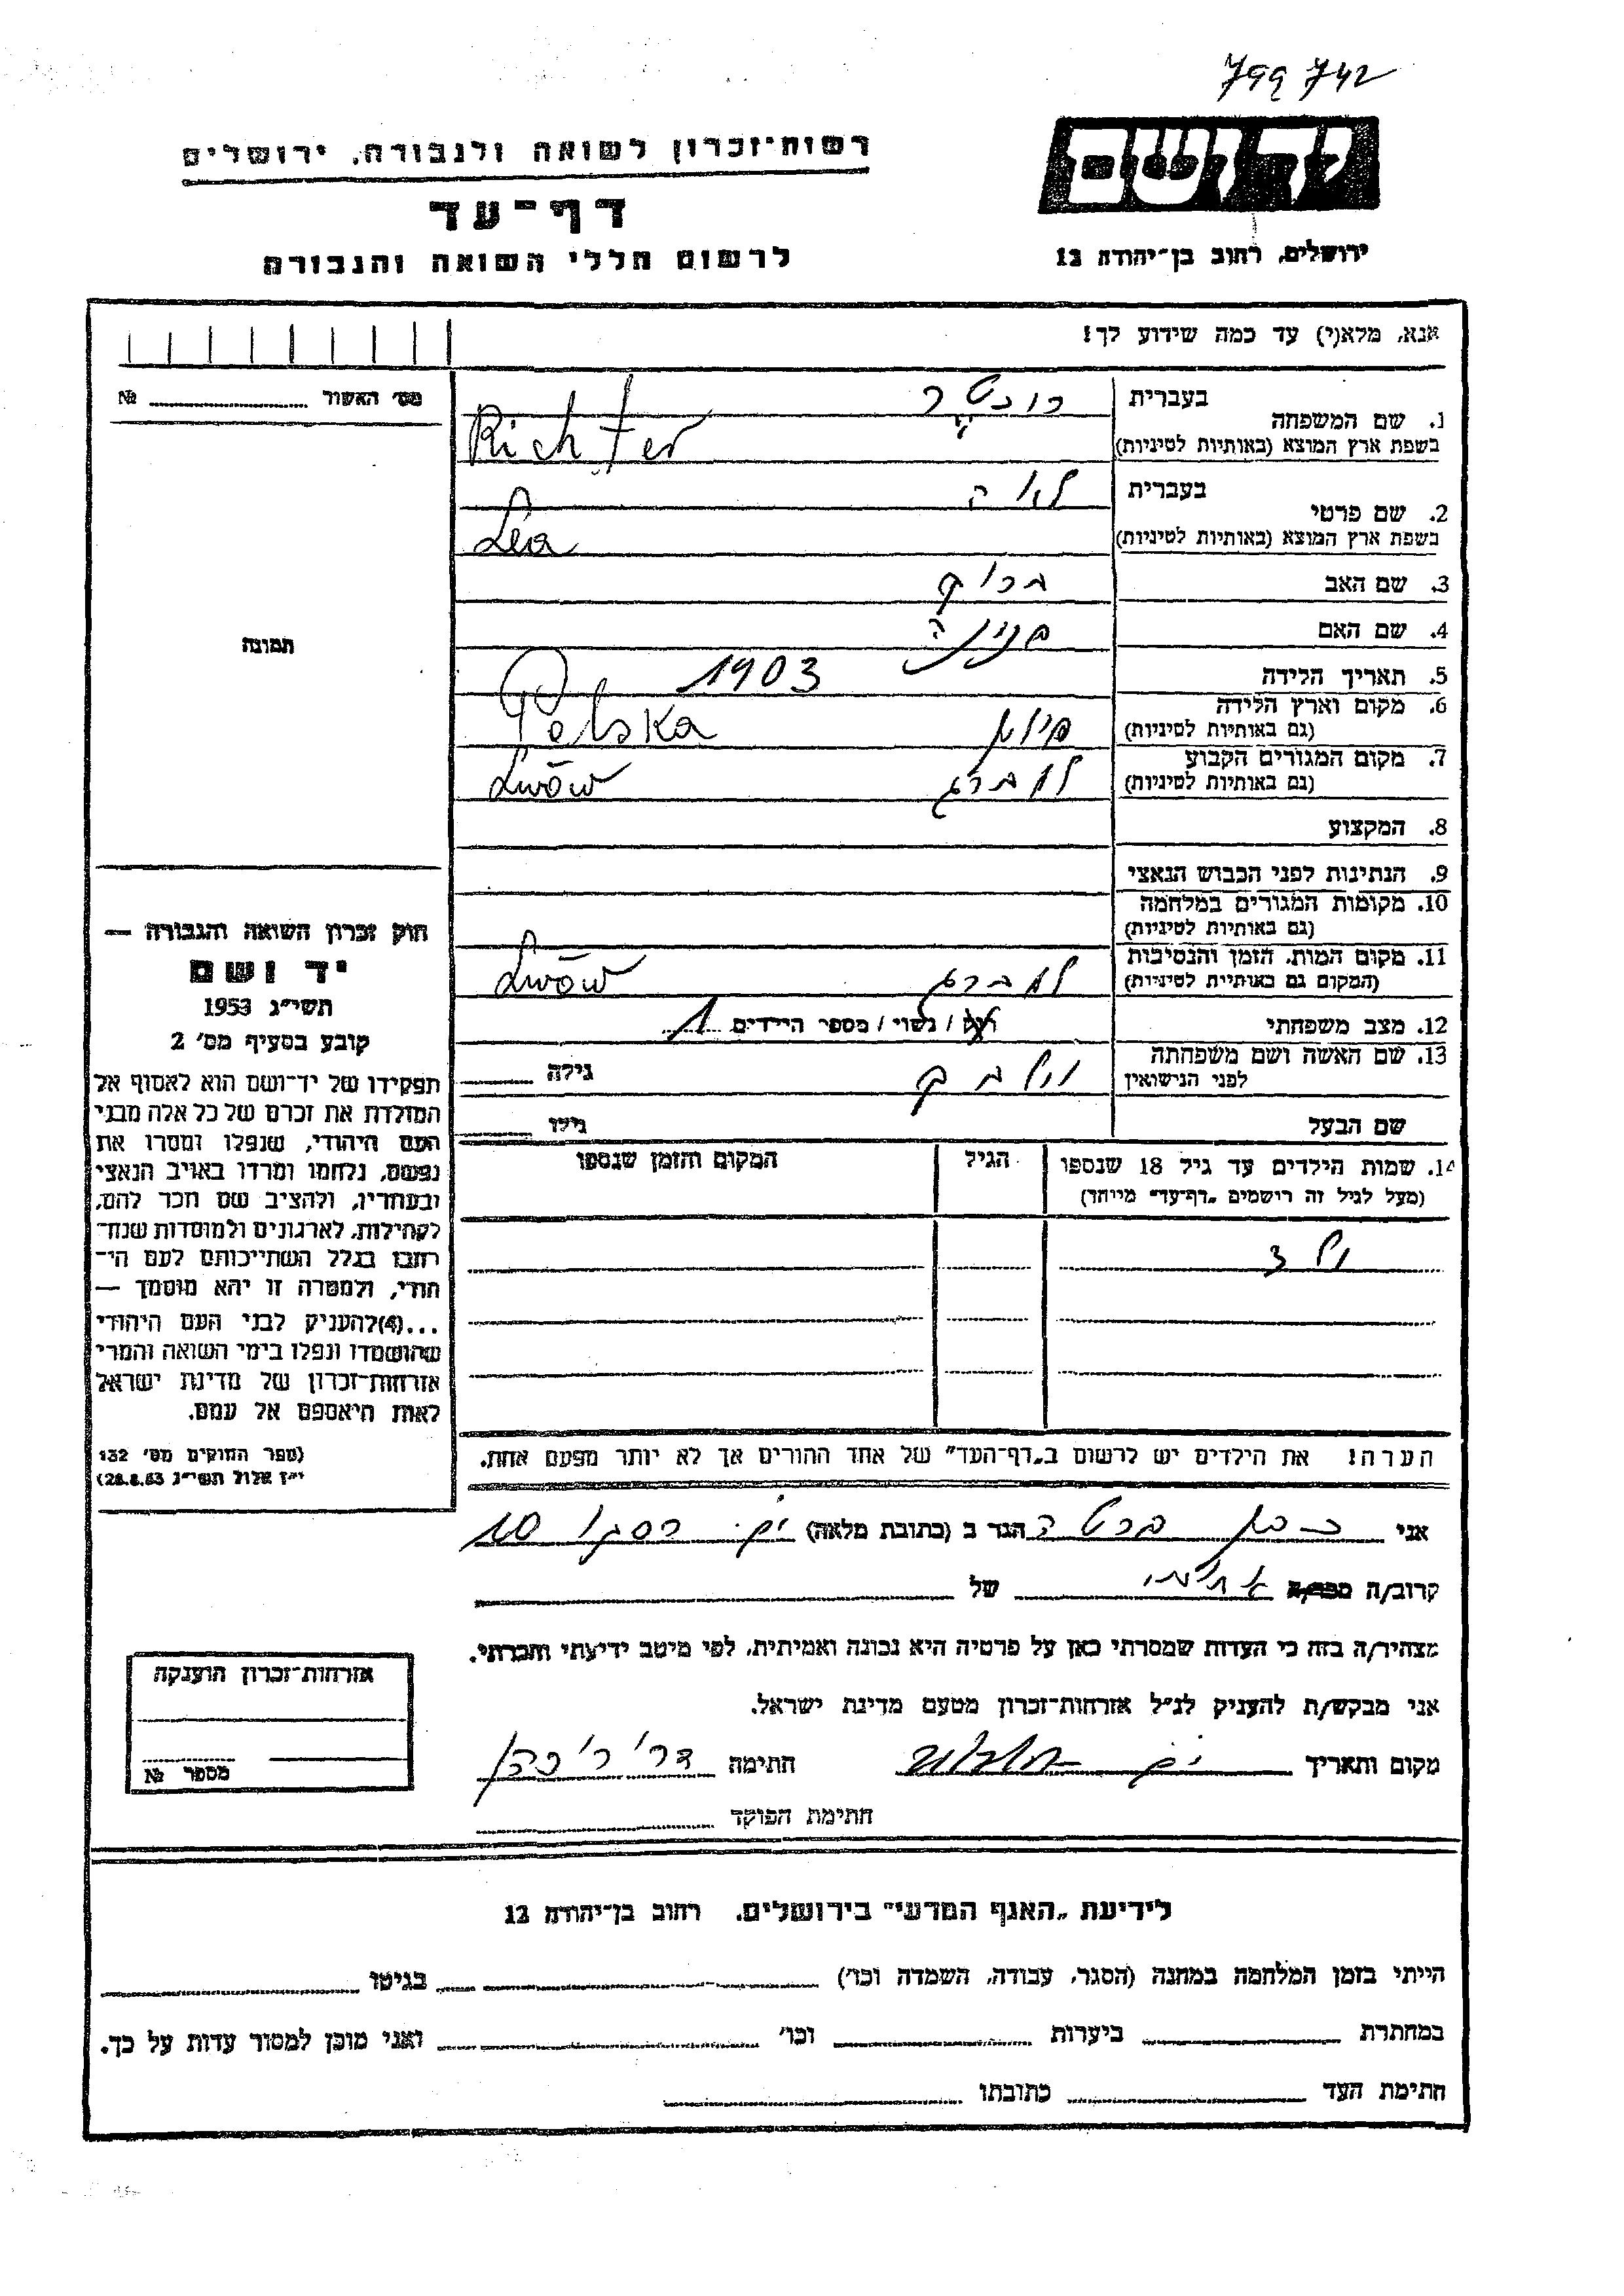 799 742
יד ושם
רשות־זכרון לשואה ולגבורה, ירושלים
דף־עד
לרשום חללי השואה והגבורה
ירושלים, רחוב בן־יהודה 12
אנא, מלא(י) עד כמה שידוע לך!
מס׳ האשור №
בעברית
1. שם המשפחה
בשפת ארץ המוצא (באותיות לטיניות) Richter
בעברית לאה
2. שם פרטי
בשפת ארץ המוצא (באותיות לטיניות) Lea
3. שם האב
4. שם האם פנינה
5. תאריך הלידה 1903
6. מקום וארץ הלידה
(גם באותיות לטיניות) פולין Polska
7. מקום המגורים הקבוע
(גם באותיות לטיניות) למברג Lwów
8. המקצוע
9. הנתינות לפני הכבוש הנאצי
10. מקומות המגורים במלחמה
(גם באותיות לטיניות)
11. מקום המות, הזמן והנסיבות
(המקום גם באותיות לטיניות) למברג Lwów
12. מצב משפחתי רוק / נשוי / מספר הילדים 1
13. שם האשה ושם משפחתה
לפני הנישואין גילה
שם הבעל גילו
14. שמות הילדים עד גיל 18 שנספו
(מעל לגיל זה רושמים „דף־עד״ מיוחד)
הגיל
המקום והזמן שנספו
ילד
הערה! את הילדים יש לרשום ב„דף־העד״ של אחד ההורים אך לא יותר מפעם אחת.
תמונה
חוק זכרון השואה והגבורה —
יד ושם
תשי״ג 1953
קובע בסעיף מס׳ 2
תפקידו של יד־ושם הוא לאסוף אל
המולדת את זכרם של כל אלה מבני
העם היהודי, שנפלו ומסרו את
נפשם, נלחמו ומרדו באויב הנאצי
ובעוזריו, ולהציב שם וזכר להם,
לקהילות, לארגונים ולמוסדות שנח־
רבו בגלל השתייכותם לעם הי־
הודי, ולמטרה זו יהא מוסמך —
...(4)להעניק לבני העם היהודי
שהושמדו ונפלו בימי השואה והמרי
אזרחות־זכרון של מדינת ישראל
לאות היאספם אל עמם.
(ספר החוקים מס׳ 132
י״ז אלול תשי״ג 28.8.53)
אני הגר ב (כתובת מלאה) 10
קרוב/ה מכר/ה של
מצהיר/ה בזה כי העדות שמסרתי כאן על פרטיה היא נכונה ואמיתית, לפי מיטב ידיעתי והכרתי.
אני מבקש/ת להעניק לנ״ל אזרחות־זכרון מטעם מדינת ישראל.
מקום ותאריך חתימה
חתימת הפוקד
אזרחות־זכרון הוענקה
מספר №
לידיעת „האגף המדעי״ בירושלים, רחוב בן־יהודה 12
הייתי בזמן המלחמה במחנה (הסגר, עבודה, השמדה וכו׳) בגיטו
במחתרת ביערות וכו׳ ואני מוכן למסור עדות על כך.
חתימת העד כתובתו